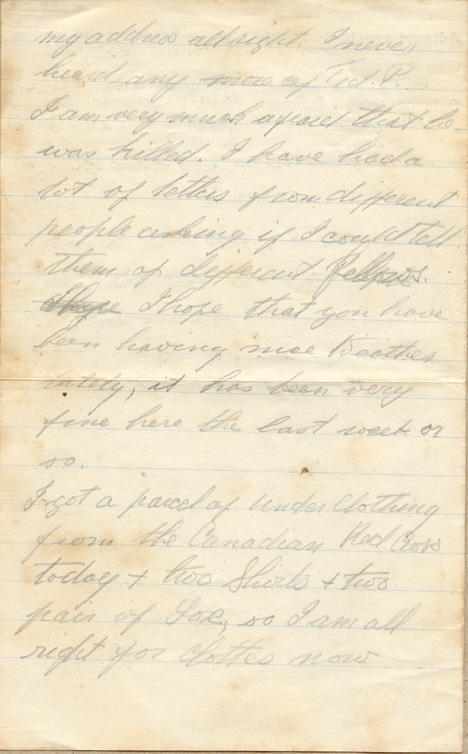 my address all right. I never
heard any more of Ted. P.
I am very much afraid that he
was killed. I have had a
lot of letters from different
people asking if I could tell
them of different fellows.
I hope that you have
been having nice Weather
lately, it has been very
fine here the last week or
so.
I got a parcel of Under Clothing
from the Canadian Red Cross
today + two Shirts + two
pair of Sox, so I am all
right for clothes now